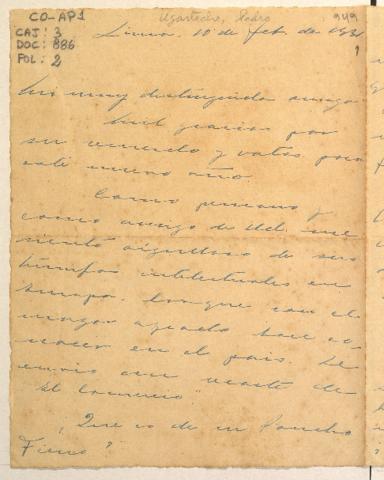 CO-AP1
CAJ: 3
DOC: 886
FOL: 2
Ugarteche, Pedro
949
Lima, 10 de feb. de 1931
Mi muy distinguido amigo
Mil gracias por
su recuerdo y votos para
este nuevo año.
Como peruano y
como amigo de Ud. me
siento orgulloso de sus
triunfos intelectuales en
Europa. Los que con el
mayor agrado hace co-
nocer en el país. Le
envío un recorte de
"El Comercio".
¿Que es de su Pancho
Fierro?